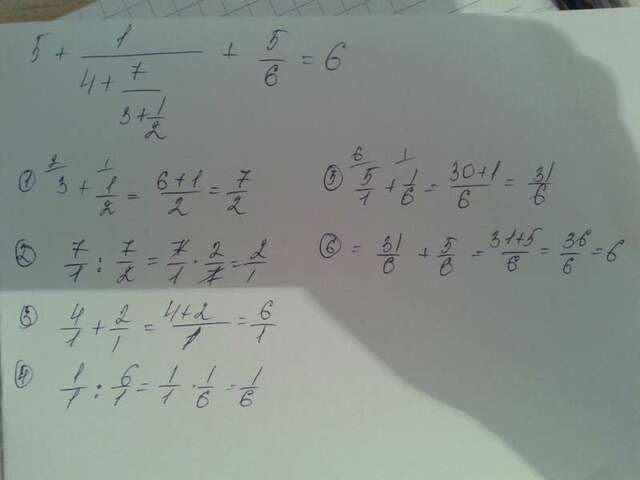 5 + 1/(4 + 7/(3 + 1/2)) + 5/6 = 6
① ²/3 + ¹/1/2 = (6+1)/2 = 7/2
② 7/1 : 7/2 = 7/1 · 2/7 = 2/1
③ 4/1 + 2/1 = (4+2)/1 = 6/1
④ 1/1 : 6/1 = 1/1 · 1/6 = 1/6
⑤ ⁶/5/1 + ¹/1/6 = (30+1)/6 = 31/6
⑥ = 31/6 + 5/6 = (31+5)/6 = 36/6 = 6